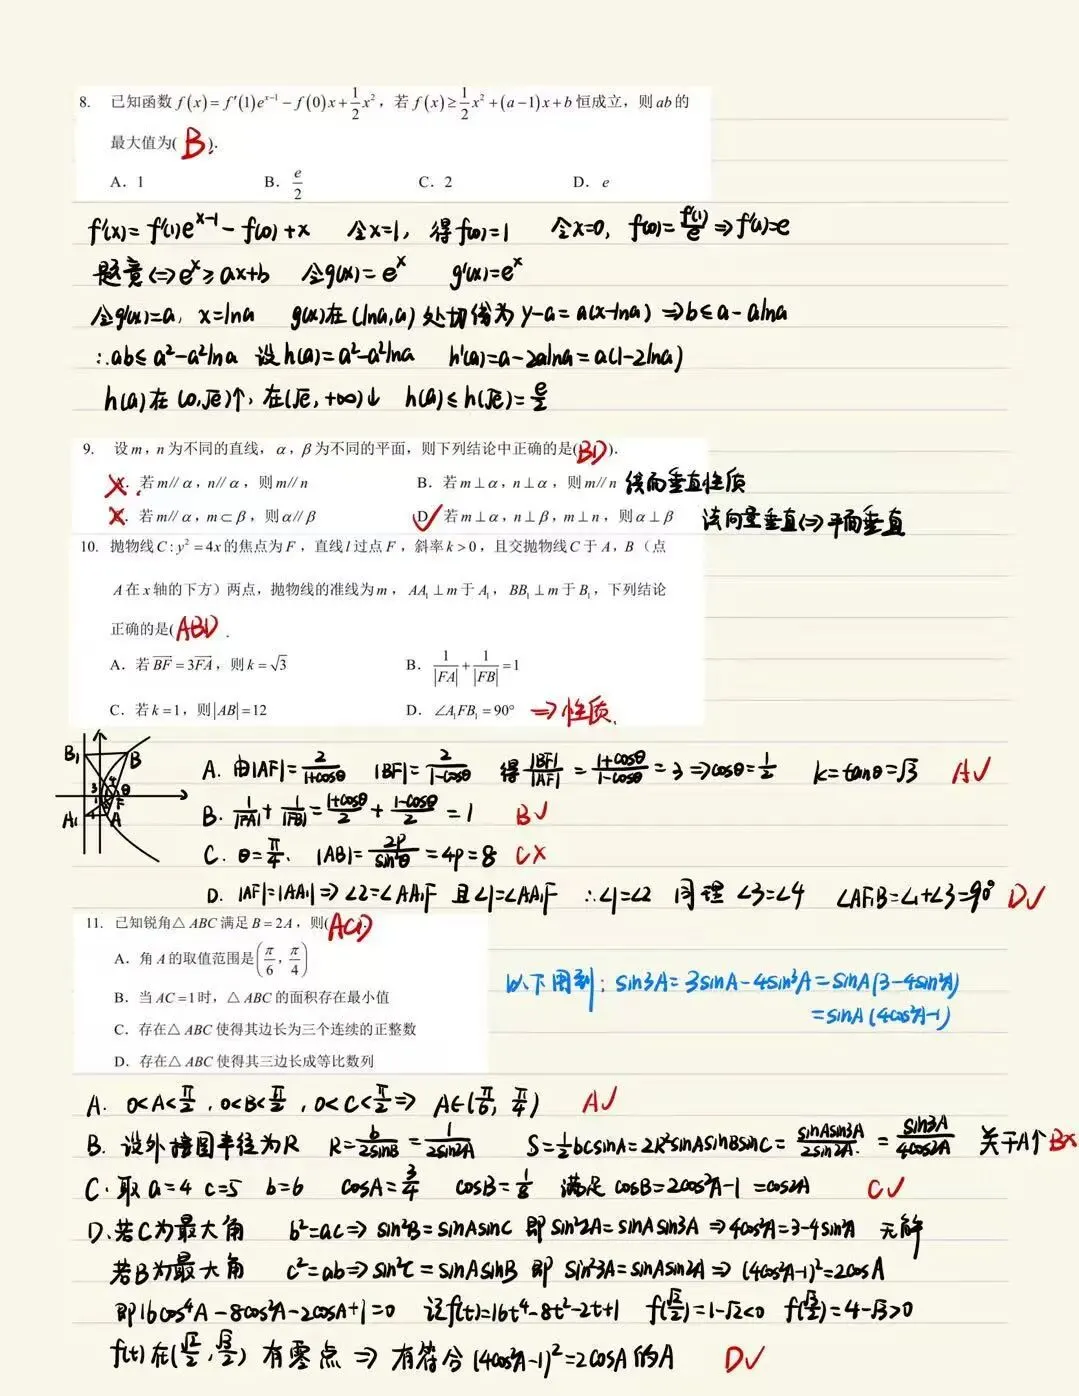 8. 已知函数 f(x)=f′(1)e^{x-1}-f(0)x+\frac{1}{2}x²，若 f(x)≥\frac{1}{2}x²+(a-1)x+b 恒成立，则 ab 的
最大值为( B ).
A. 1 B. \frac{e}{2} C. 2 D. e
f′(x)=f′(1)e^{x-1}-f(0)+x 令x=1，得f(0)=1 令x=0，f(0)=\frac{f′(1)}{e}⇒f′(1)=e
题意⇔e^x≥ax+b 令g(x)=e^x g′(x)=e^x
令g′(x)=a，x=lna g(x)在(lna,a)处切线为y-a=a(x-lna)⇒b≤a-alna
∴ab≤a²-a²lna 设h(a)=a²-a²lna h′(a)=a-2alna=a(1-2lna)
h(a)在(0,√e)↑，在(√e,+∞)↓ h(a)≤h(√e)=\frac{e}{2}
9. 设 m，n 为不同的直线，α，β 为不同的平面，则下列结论中正确的是(BD).
✗. 若 m//α，n//α，则 m//n B. 若 m⊥α，n⊥α，则 m//n 线面垂直性质
✗. 若 m//α，m⊂β，则 α//β D✓ 若 m⊥α，n⊥β，m⊥n，则 α⊥β 法向量垂直⇔平面垂直
10. 抛物线 C:y²=4x 的焦点为 F，直线 l 过点 F，斜率 k>0，且交抛物线 C 于 A，B（点
A 在 x 轴的下方）两点，抛物线的准线为 m，AA₁⊥m 于 A₁，BB₁⊥m 于 B₁，下列结论
正确的是(ABD).
A. 若 \overrightarrow{BF}=3\overrightarrow{FA}，则 k=√3 B. \frac{1}{|FA|}+\frac{1}{|FB|}=1
C. 若 k=1，则|AB|=12 D. ∠A₁FB₁=90° ⇒性质.
B₁ B A₁ A F θ 1 2 3 4
A. 由|AF|=\frac{2}{1+cosθ} |BF|=\frac{2}{1-cosθ} 得\frac{|BF|}{|AF|}=\frac{1+cosθ}{1-cosθ}=3⇒cosθ=\frac{1}{2} k=tanθ=√3 A✓
B. \frac{1}{|FA|}+\frac{1}{|FB|}=\frac{1+cosθ}{2}+\frac{1-cosθ}{2}=1 B✓
C. θ=\frac{π}{4}. |AB|=\frac{2p}{sin²θ}=4p=8 C×
D. |AF|=|AA₁|⇒∠2=∠AA₁F 且∠1=∠AA₁F ∴∠1=∠2 同理 ∠3=∠4 ∠A₁FB₁=∠1+∠3=90° D✓
11. 已知锐角△ABC 满足 B=2A，则(ACD)
A. 角 A 的取值范围是(\frac{π}{6},\frac{π}{4})
B. 当 AC=1 时，△ABC 的面积存在最小值
C. 存在△ABC 使得其边长为三个连续的正整数
D. 存在△ABC 使得其三边长成等比数列
以下用到：sin3A=3sinA-4sin³A=sinA(3-4sin²A)
=sinA(4cos²A-1)
A. 0<A<\frac{π}{2}，0<B<\frac{π}{2}，0<C<\frac{π}{2}⇒ A∈(\frac{π}{6},\frac{π}{4}) A✓
B. 设外接圆半径为R R=\frac{b}{2sinB}=\frac{1}{2sin2A} S=\frac{1}{2}bcsinA=2R²sinAsinBsinC=\frac{sinAsin3A}{2sin2A}=\frac{sin3A}{4cos2A} 关于A↑ B×
C. 取a=4 c=5 b=6 cosA=\frac{3}{4} cosB=\frac{1}{8} 满足 cosB=2cos²A-1=cos2A C✓
D. 若C为最大角 b²=ac⇒sin²B=sinAsinC 即sin²2A=sinAsin3A⇒4cos²A=3-4sin²A 无解
若B为最大角 c²=ab⇒sin²C=sinAsinB 即 sin²3A=sinAsin2A⇒(4cos²A-1)²=2cosA
即16cos⁴A-8cos²A-2cosA+1=0 设f(t)=16t⁴-8t²-2t+1 f(\frac{√2}{2})=1-√2<0 f(\frac{√3}{2})=4-√3>0
f(t)在(\frac{√2}{2},\frac{√3}{2})有零点⇒有符合(4cos²A-1)²=2cosA的A D✓